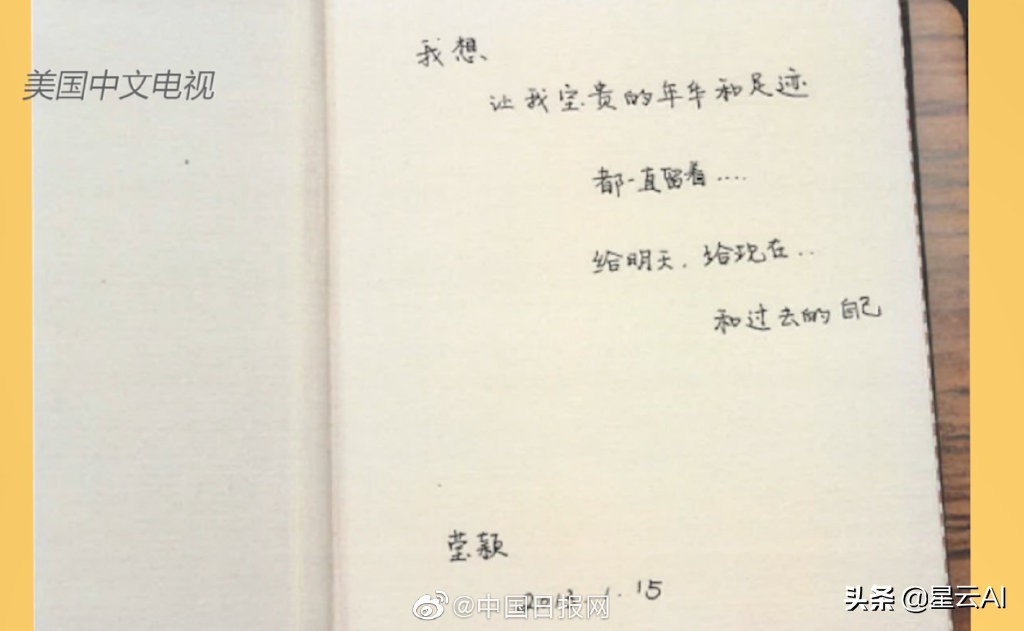 美国中文电视
我想、
让我宝贵的年华和足迹
都一直留着....
给明天、给现在...
和过去的自己
莹颖
1.15
@中国日报网
头条 @星云AI